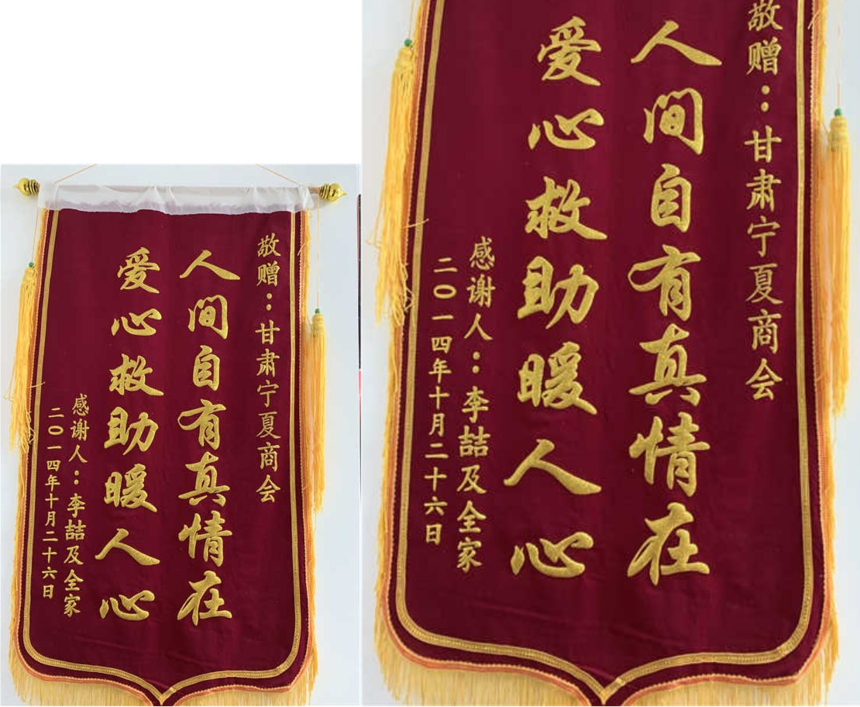 敬赠：甘肃宁夏商会
人间自有真情在
爱心救助暖人心
感谢人：李喆及全家
二〇一四年十月二十六日
敬赠：甘肃宁夏商会
人间自有真情在
爱心救助暖人心
感谢人：李喆及全家
二〇一四年十月二十六日